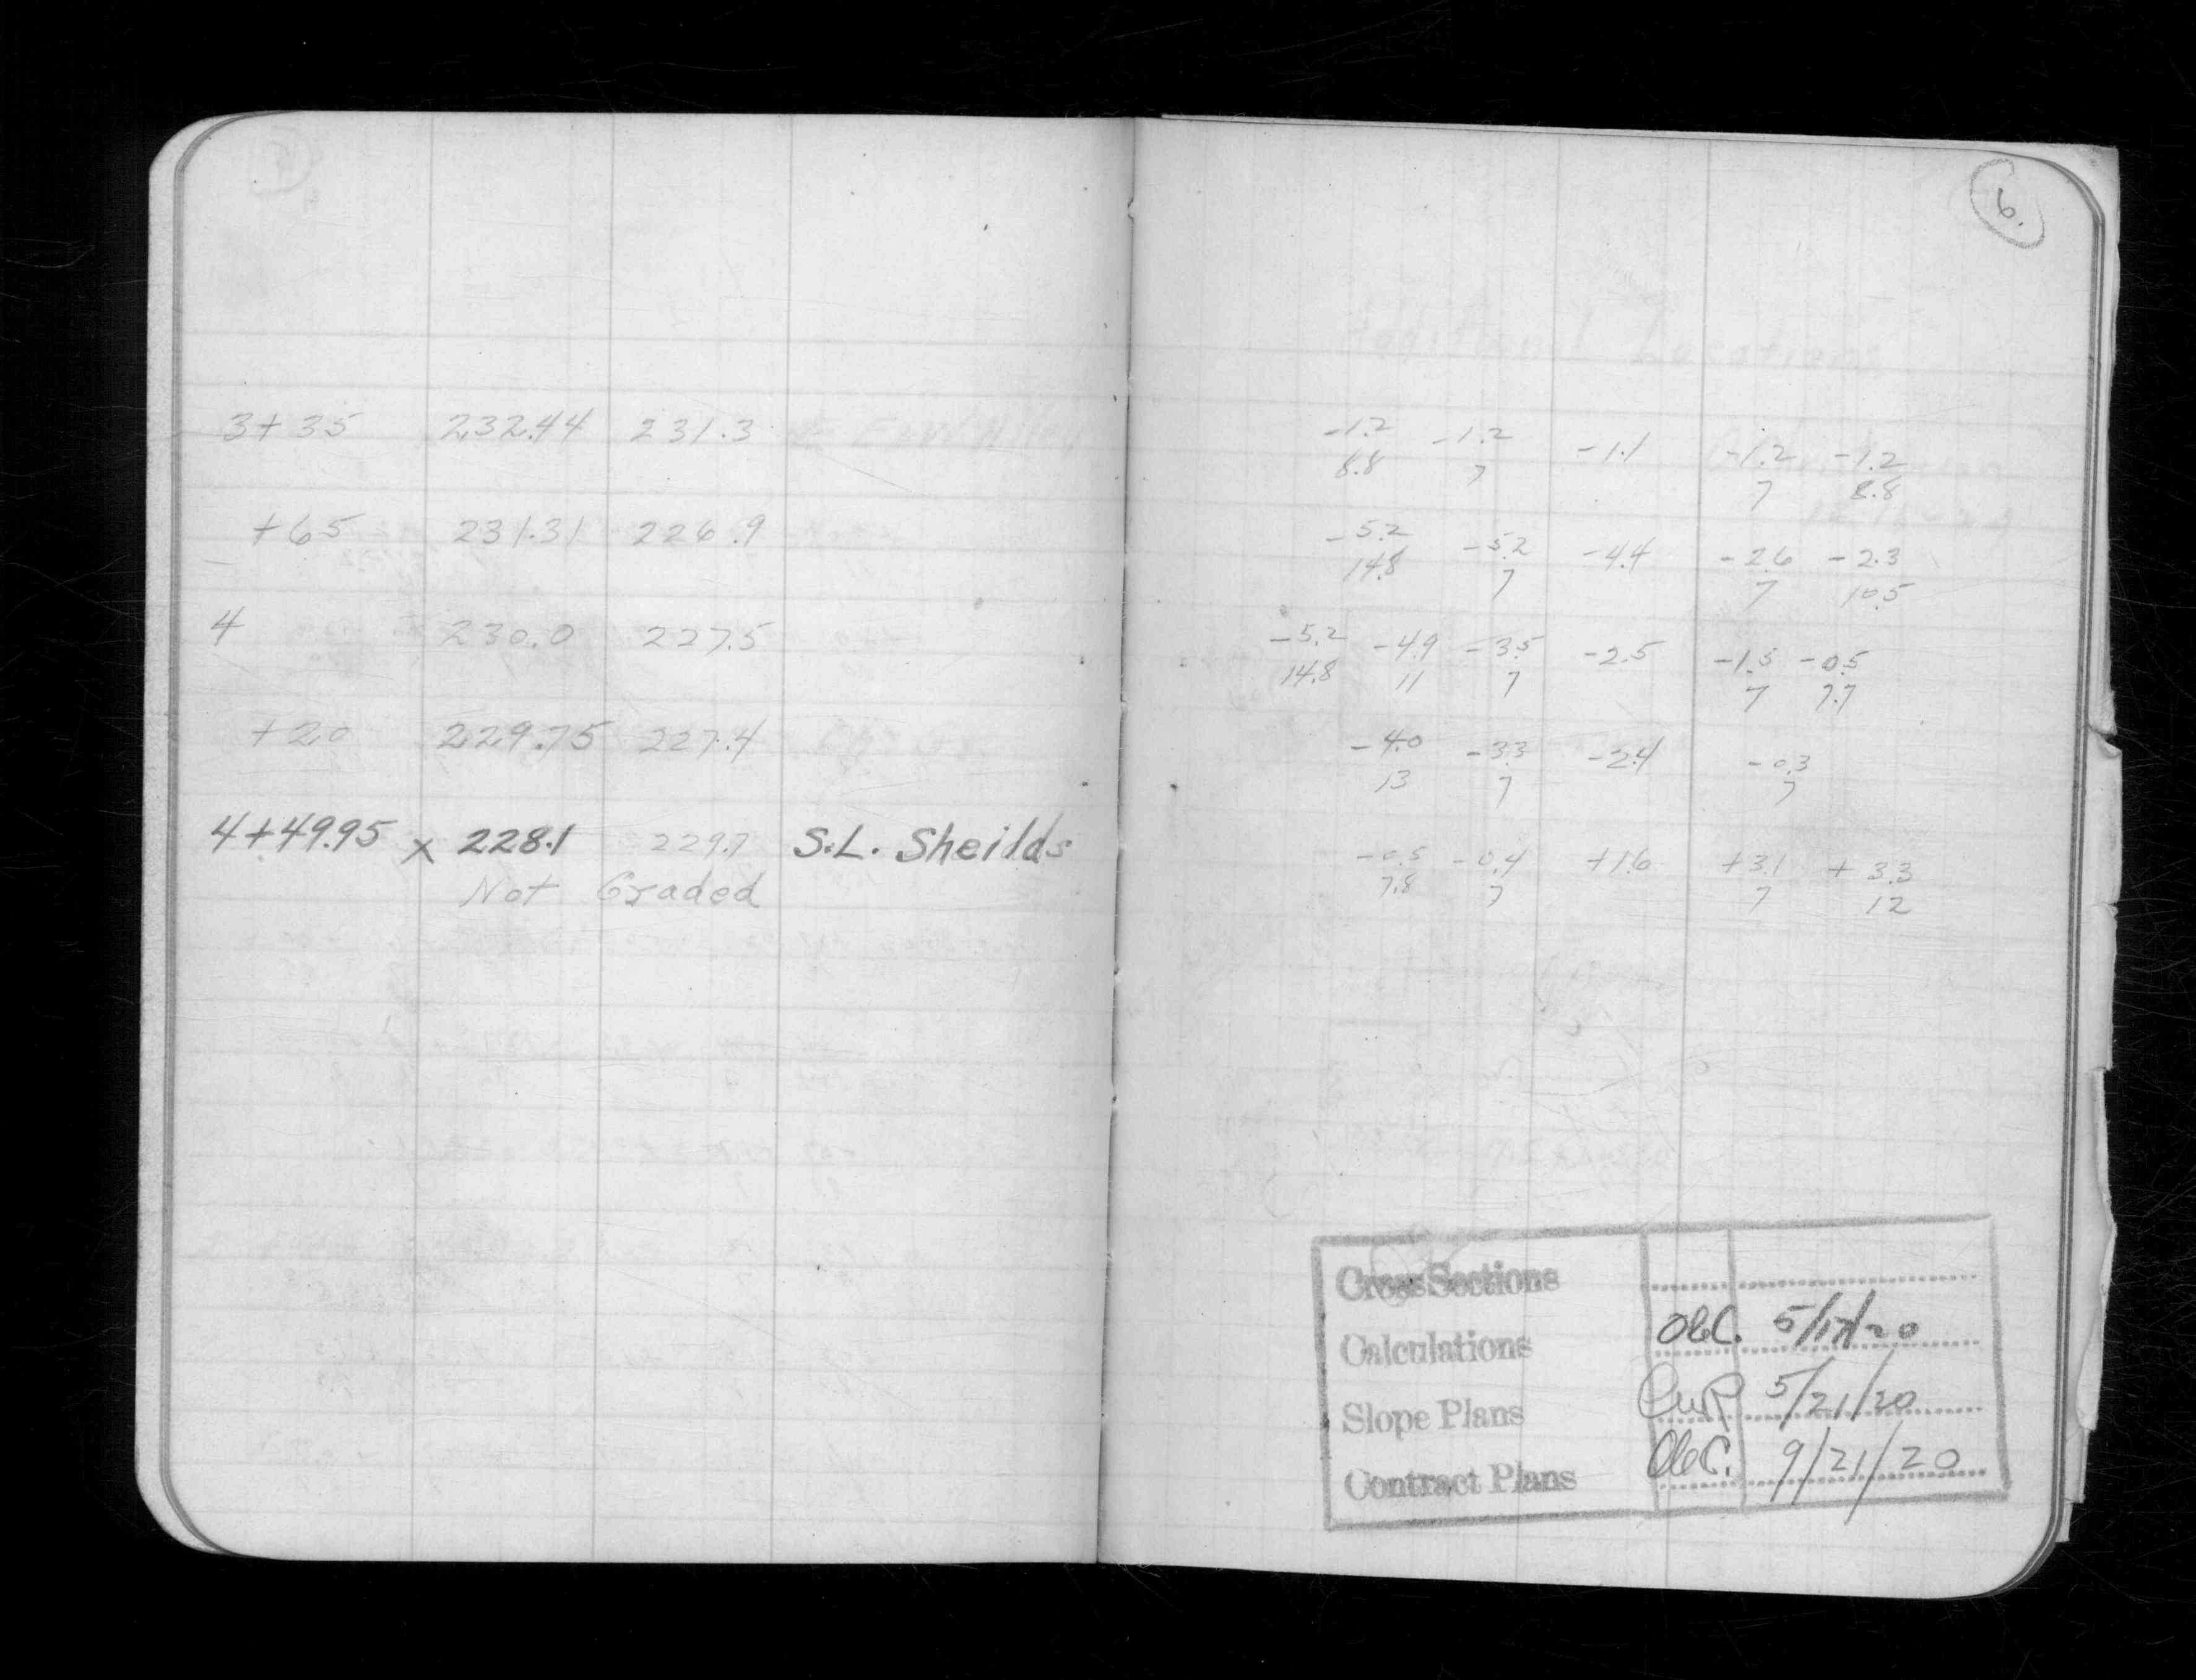 6.
3+35 232.44 231.3
-1.2 -1.2 -1.1 -1.2 -1.2
8.8 7 7 8.8
+65 231.31 226.9
-5.2 -5.2 -4.4 -2.6 -2.3
14.8 7 7 10.5
4 230.0 227.5
-5.2 -4.9 -3.5 -2.5 -1.5 -0.5
14.8 11 7 7 7.7
+20 229.75 227.4
-4.0 -3.3 -2.4 -0.3
13 7 7
4+49.95 x 228.1 229.7 S.L. Sheilds
Not Graded
-0.5 -0.4 +1.6 +3.1 + 3.3
7.8 7 7 12
Cross Sections
Calculations OleC. 5/17/20
Slope Plans 5/21/20
Contract Plans OleC. 9/21/20